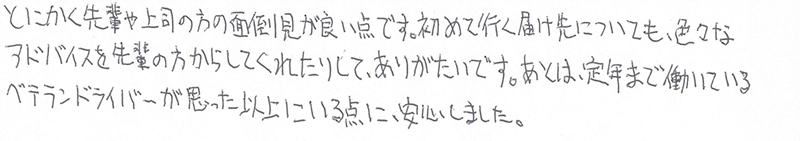 とにかく先輩や上司の方の面倒見が良い点です。初めて行く届け先についても、色々な
アドバイスを先輩の方からしてくれたりして、ありがたいです。あとは、定年まで働いている
ベテランドライバーが思った以上にいる点に、安心しました。